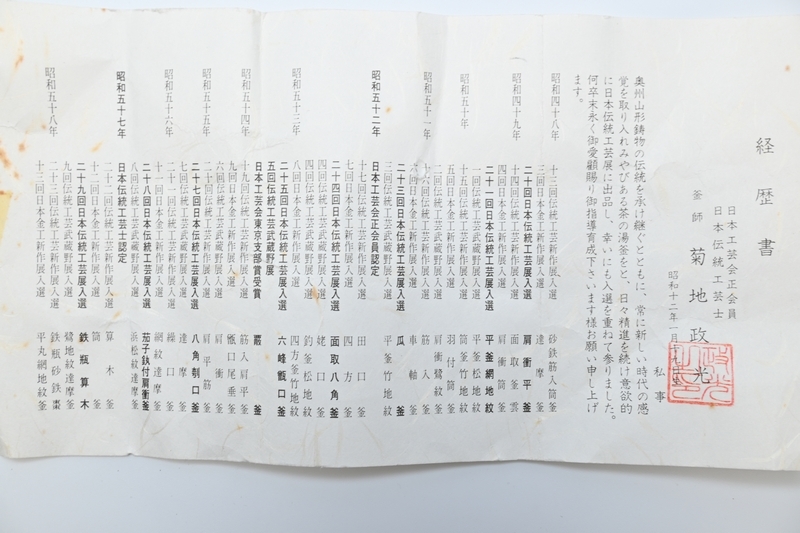 経歴書
日本工芸会正会員
日本伝統工芸士
釜師 菊地政光
昭和十二年一月十九日生
私事
奥州山形鋳物の伝統を承け継ぐとともに、常に新しい時代の感
覚を取り入れみやびある茶の湯釜をと、日々精進を続け意欲的
に日本伝統工芸展に出品し、幸いにも入選を重ねて参りました。
何卒末永く御愛顧賜り御指導育成下さいます様お願い申し上げ
ます。
昭和四十八年 十三回伝統工芸新作展入選 砂鉄筋入筒釜
三回日本金工新作展入選 達摩釜
昭和四十九年 二十回日本伝統工芸展入選 肩衝平釜
十四回伝統工芸新作展入選 面取釜雲
四回日本金工新作展入選 肩衝筒釜
二十一回日本伝統工芸展入選 平釜網地紋
一回伝統工芸武蔵野展入選 平釜松地紋
昭和五十年 十五回伝統工芸新作展入選 筒釜竹地紋
五回日本金工新作展入選 羽付筒釜
二回伝統工芸武蔵野展入選 肩衝鷺紋釜
昭和五十一年 十六回伝統工芸新作展入選 筋入釜
六回日本金工新作展入選 車軸釜
二十三回日本伝統工芸展入選 瓜釜
昭和五十二年 日本工芸会正会員認定
十七回伝統工芸新作展入選 平釜竹地紋
七回日本金工新作展入選 田口釜
二十四回日本伝統工芸展入選 面取八角釜
四回伝統工芸武蔵野展入選 姥口釜
昭和五十三年 八回日本金工新作展入選 四方釜竹地紋
二十五回日本伝統工芸展入選 六峰甑口釜
五回伝統工芸武蔵野展
日本工芸会東京支部賞受賞 霰釜
昭和五十四年 十九回伝統工芸新作展入選 筋入肩平釜
九回日本金工新作展入選 甑口尾垂釜
六回伝統工芸武蔵野展入選 肩衝釜
昭和五十五年 二十回伝統工芸新作展入選 肩平筋釜
二十七回日本伝統工芸展入選 八角甎口釜
七回伝統工芸武蔵野展入選 達摩釜
昭和五十六年 二十一回伝統工芸新作展入選 繰口釜
十一回日本金工新作展入選 網紋達摩釜
二十八回日本伝統工芸展入選 茄子鈦付肩衝釜
八回伝統工芸武蔵野展入選 浜松紋達摩釜
昭和五十七年 日本伝統工芸士認定
二十二回伝統工芸新作展入選 算木釜
十二回日本金工新作展入選 筒釜
二十九回日本伝統工芸展入選 鉄瓶算木
九回伝統工芸武蔵野展入選 鷺地紋達摩釜
昭和五十八年 二十三回伝統工芸新作展入選 鉄瓶砂鉄棗
十三回日本金工新作展入選 平丸網地紋釜